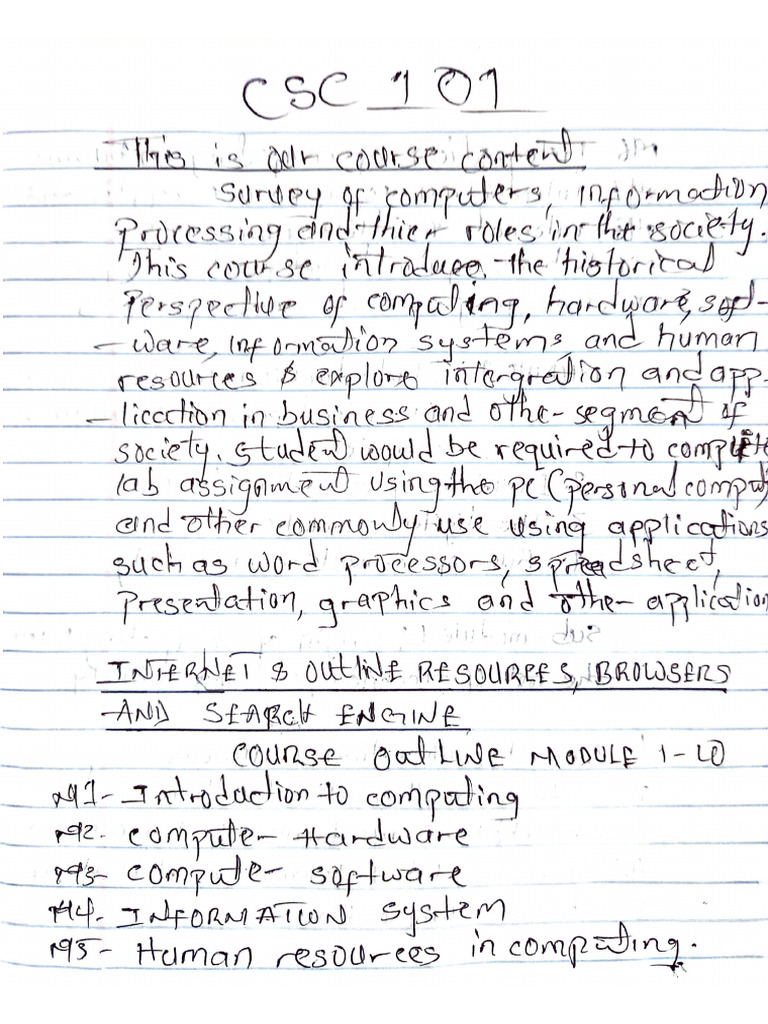 CSC 101
This is our course content
survey of computers, information
Processing and thier roles in the society.
This course introduce the historical
Perspective of computing, hardware, soft-
- ware, information systems and human
resources & explore intergration and app-
- lication in business and other segment of
society. Student would be required to complete
lab assignment using the PC (personal comput
and other commonly use using applications
such as word processors, spreadsheet,
Presentation, graphics and other application
INTERNET & OUTLINE RESOURCES, BROWSERS
AND SEARCH ENGINE
COURSE OUTLINE MODULE 1-10
M1- Introduction to computing
M2- computer Hardware
M3- computer software
M4. INFORMATION system
M5- Human resources in computing.